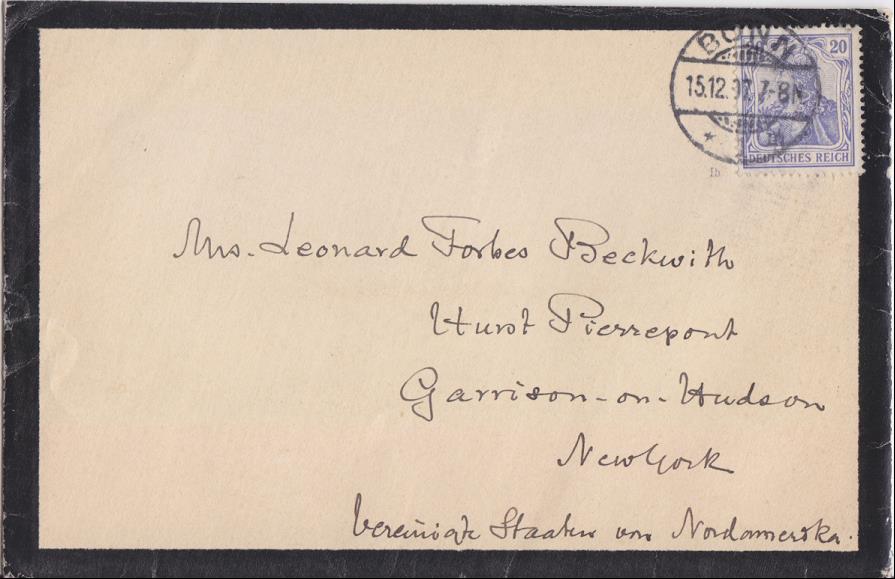 BONN
15.12.07. 7-8N
20
DEUTSCHES REICH
1b
Mrs. Leonard Forbes Beckwith
Hurst Pierrepont
Garrison-on-Hudson
New York
Vereinigte Staaten von Nordamerika.